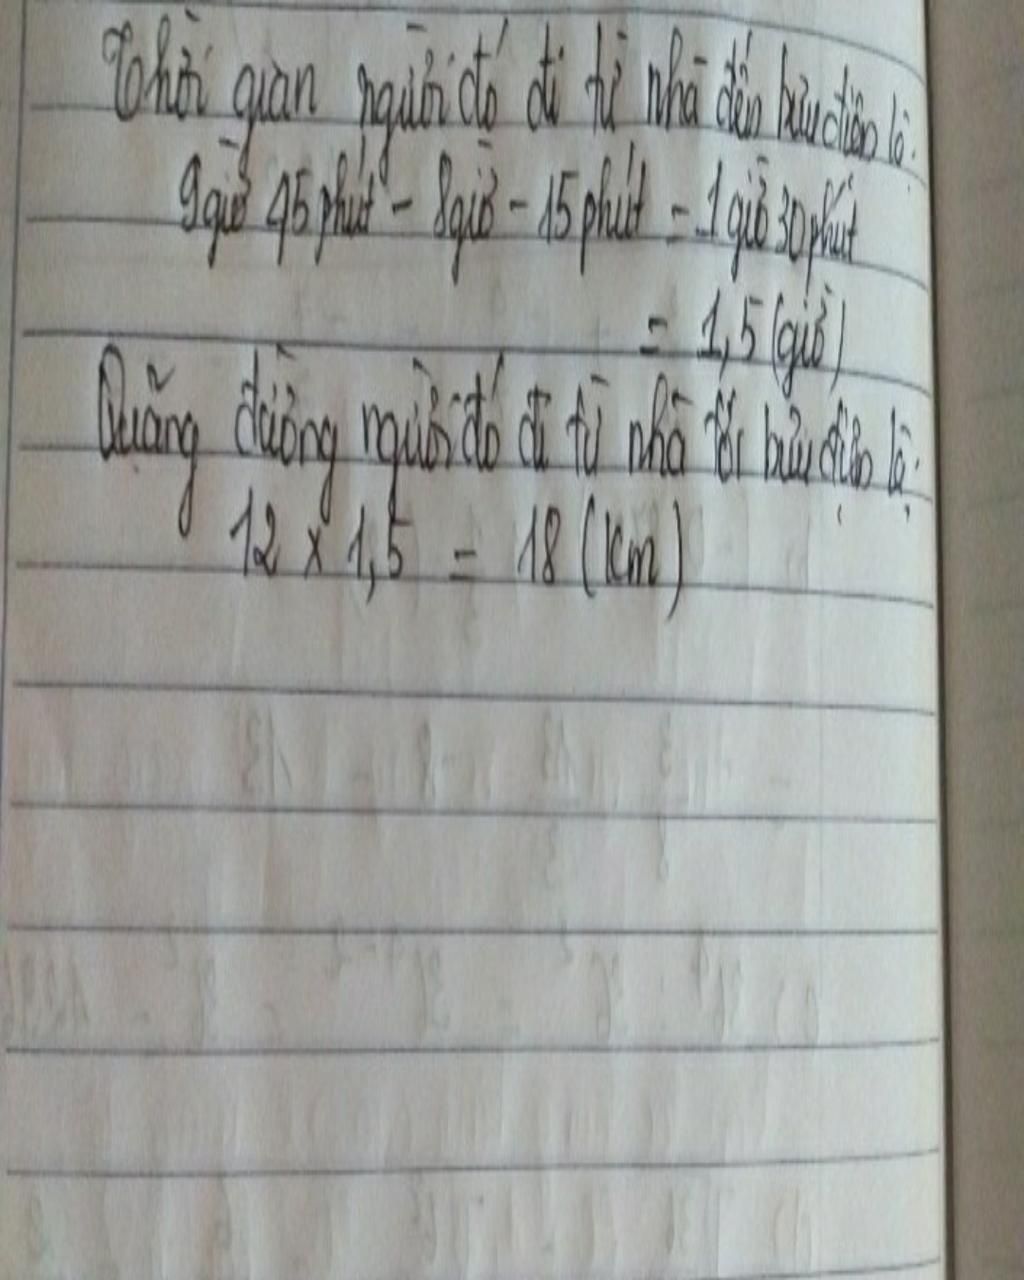 Thời gian người đó đi từ nhà đến bưu điện là:
9giờ 45 phút - 8giờ - 15 phút = 1 giờ 30 phút
= 1,5 (giờ)
Quãng đường người đó đi từ nhà tới bưu điện là:
12 x 1,5 = 18 (km)